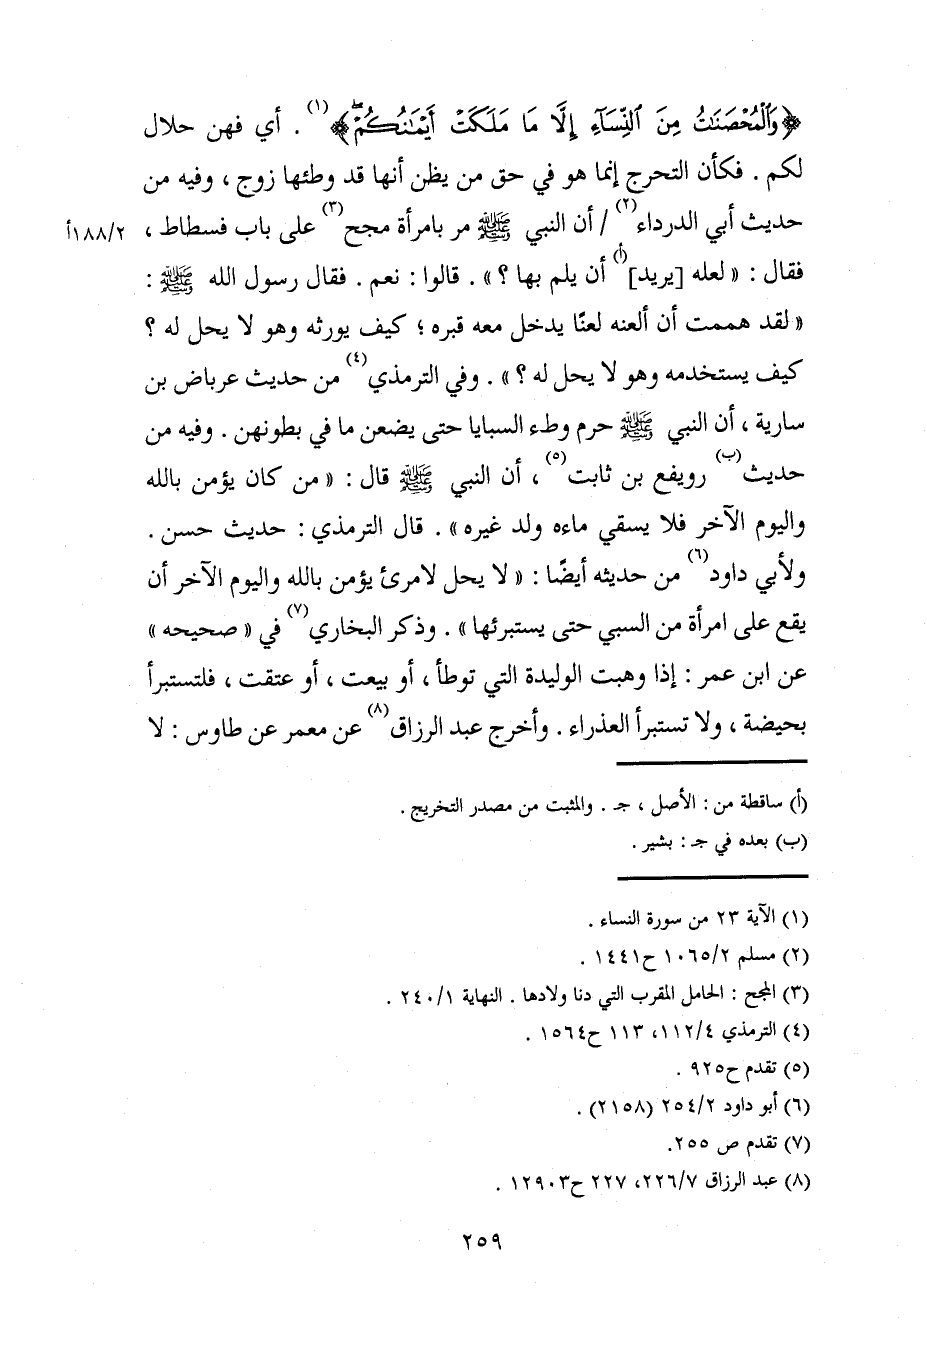 ﴿وَٱلْمُحْصَنَٰتُ مِنَ ٱلنِّسَآءِ إِلَّا مَا مَلَكَتْ أَيْمَٰنُكُمْۖ﴾(١) . أي فهن حلال
لكم . فكأن التحرج إنما هو في حق من يظن أنها قد وطئها زوج ، وفيه من
حديث أبي الدرداء(٢) / أن النبي ﷺ مر بامرأة مجح(٣) على باب فسطاط ، ١٨٨/٢أ
فقال : « لعله [يريد](أ) أن يلم بها ؟ » . قالوا : نعم . فقال رسول الله ﷺ :
« لقد هممت أن ألعنه لعنًا يدخل معه قبره ؛ كيف يورثه وهو لا يحل له ؟
كيف يستخدمه وهو لا يحل له ؟ » . وفي الترمذي(٤) من حديث عرباض بن
سارية ، أن النبي ﷺ حرم وطء السبايا حتى يضعن ما في بطونهن . وفيه من
حديث(ب) رويفع بن ثابت(٥) ، أن النبي ﷺ قال : « من كان يؤمن بالله
واليوم الآخر فلا يسقي ماءه ولد غيره » . قال الترمذي : حديث حسن .
ولأبي داود(٦) من حديثه أيضًا : « لا يحل لامرئ يؤمن بالله واليوم الآخر أن
يقع على امرأة من السبي حتى يستبرئها » . وذكر البخاري(٧) في « صحيحه »
عن ابن عمر : إذا وهبت الوليدة التي توطأ ، أو بيعت ، أو عتقت ، فلتستبرأ
بحيضة ، ولا تستبرأ العذراء . وأخرج عبد الرزاق(٨) عن معمر عن طاوس : لا
(أ) ساقطة من : الأصل ، جـ . والمثبت من مصدر التخريج .
(ب) بعده في جـ : بشير .
(١) الآية ٢٣ من سورة النساء .
(٢) مسلم ١٠٦٥/٢ ح١٤٤١ .
(٣) المجح : الحامل المقرب التي دنا ولادها . النهاية ٢٤٠/١ .
(٤) الترمذي ١١٢/٤، ١١٣ ح١٥٦٤ .
(٥) تقدم ح٩٢٥ .
(٦) أبو داود ٢٥٤/٢ (٢١٥٨) .
(٧) تقدم ص ٢٥٥.
(٨) عبد الرزاق ٢٢٦/٧، ٢٢٧ ح١٢٩٠٣ .
٢٥٩